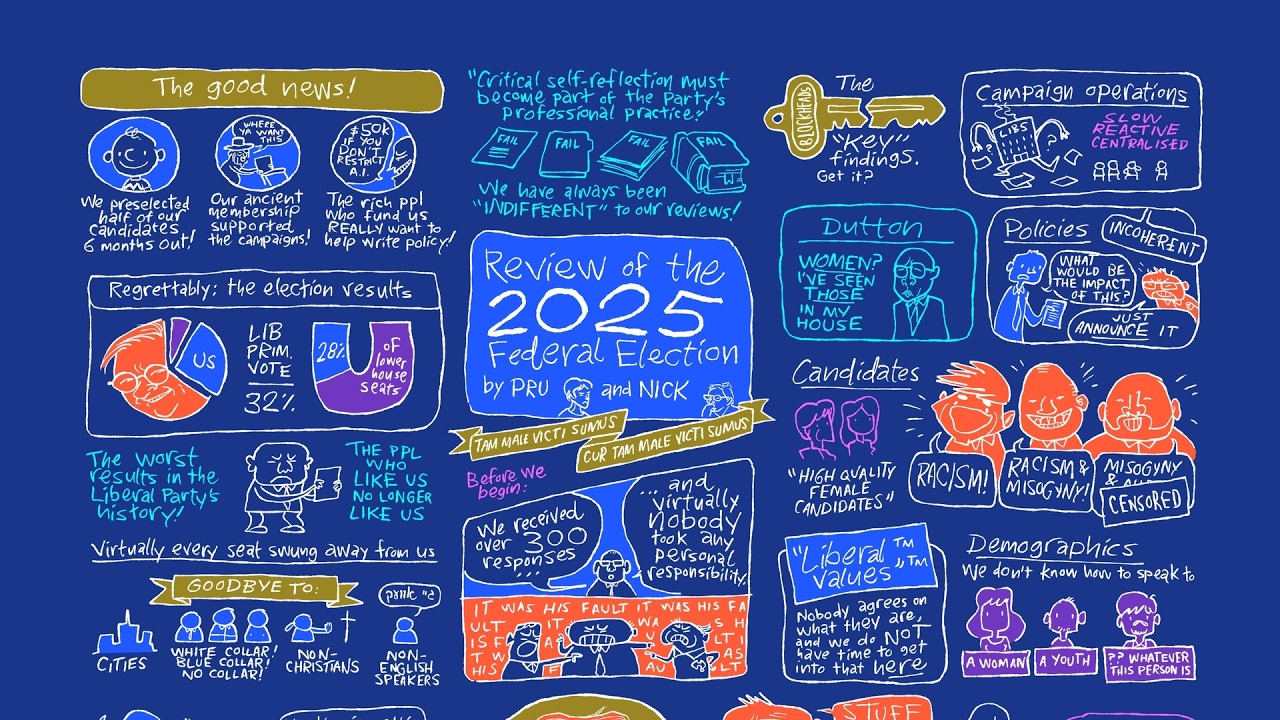 The good news!
WHERE
YA WANT
THIS
$50K
IF YOU
DON'T
RESTRICT
A.I.
We preselected
half of our
candidates
6 months out!
Our ancient
membership
supported
the campaigns!
The rich ppl
who fund us
REALLY want to
help write policy!
Regrettably: the election results
US
LIB
PRIM.
VOTE
32%
28%
of
lower
house
seats
The worst
results in the
Liberal Party's
history!
THE PPL
WHO
LIKE US
NO LONGER
LIKE US
Virtually every seat swung away from us
GOODBYE TO:
CITIES
WHITE COLLAR!
BLUE COLLAR!
NO COLLAR!
NON-
CHRISTIANS
NON-
ENGLISH
SPEAKERS
"Critical self-reflection must
become part of the Party's
professional practice."
FAIL
FAIL
FAIL
FAIL
We have always been
"INDIFFERENT" to our reviews!
Review of the
2025
Federal Election
by PRU and NICK
TAM MALE VICTI SUMUS
CUR TAM MALE VICTI SUMUS
Before we
begin:
We received
over 300
responses
...
...and
virtually
nobody
took any
personal
responsibility.
IT WAS HIS FAULT IT WAS HIS FA
ULT
IS F
T W
HIS
The
BLOCKHEADS
"Key"
findings.
Get it?
Campaign operations
LIBS
SLOW
REACTIVE
CENTRALISED
Dutton
WOMEN?
I'VE SEEN
THOSE
IN MY
HOUSE
Policies
INCOHERENT
WHAT
WOULD BE
THE IMPACT
OF THIS?
JUST
ANNOUNCE IT
Candidates
"HIGH QUALITY
FEMALE
CANDIDATES"
RACISM!
RACISM &
MISOGYNY!
MISOGYNY
&
CENSORED
"Liberal™
values"™
Nobody agrees on
what they are,
and we do NOT
have time to get
into that here
Demographics
We don't know how to speak to
A WOMAN
A YOUTH
?? WHATEVER
THIS PERSON IS
STUFF